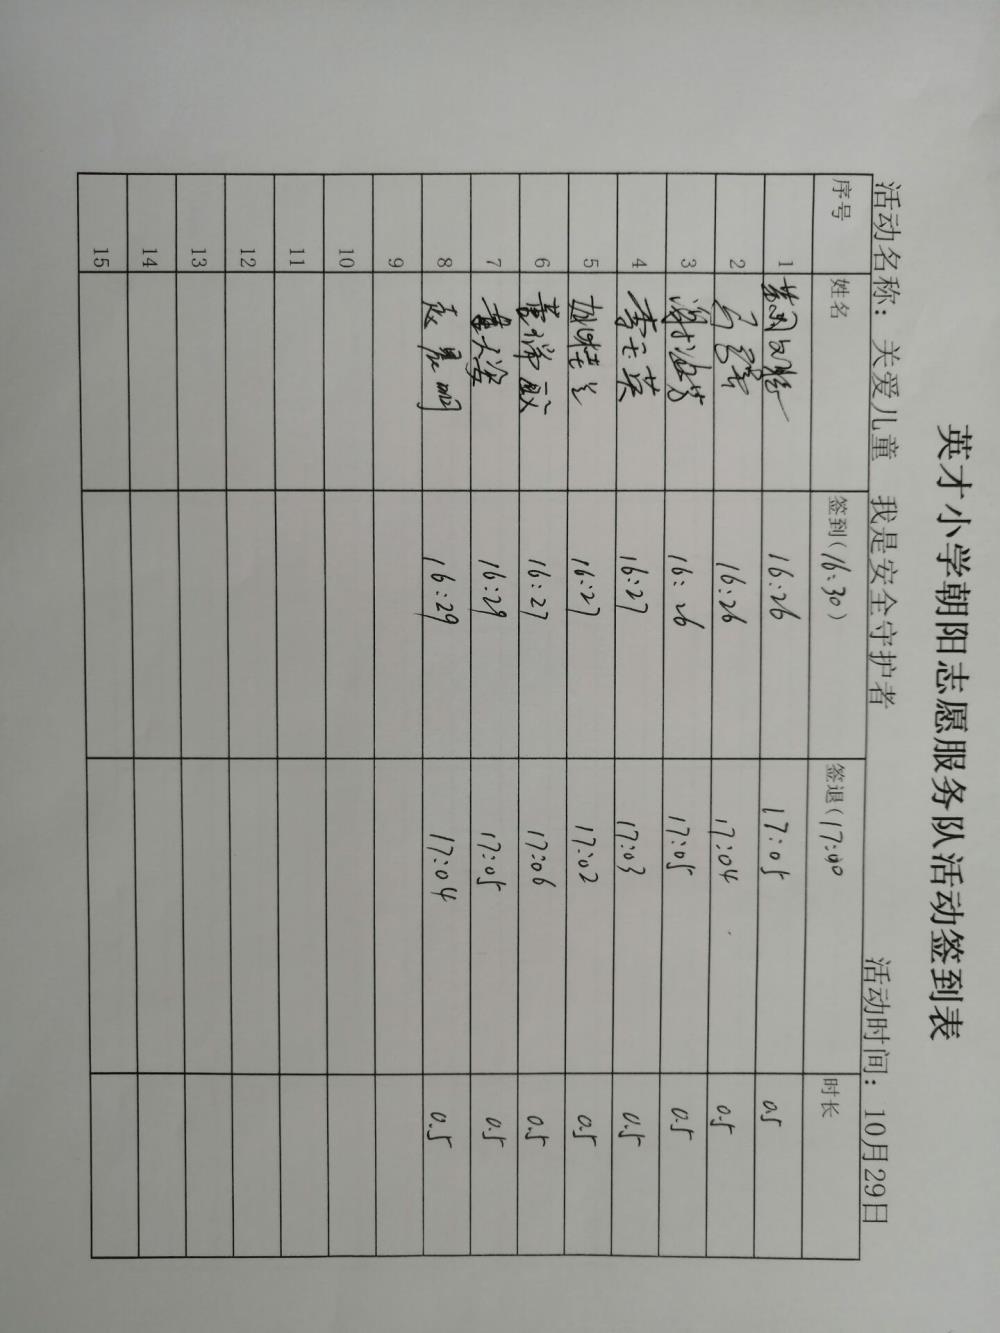 英才小学朝阳志愿服务队活动签到表
活动名称：关爱儿童 我是安全守护者 活动时间：10月29日
序号 姓名 签到（16:30） 签退（17:00 时长
1 16:26 17:05 0.5
2 16:26 17:04 0.5
3 16:26 17:05 0.5
4 李玉英 16:27 17:03 0.5
5 16:27 17:02 0.5
6 16:27 17:06 0.5
7 16:29 17:05 0.5
8 16:29 17:04 0.5
9
10
11
12
13
14
15